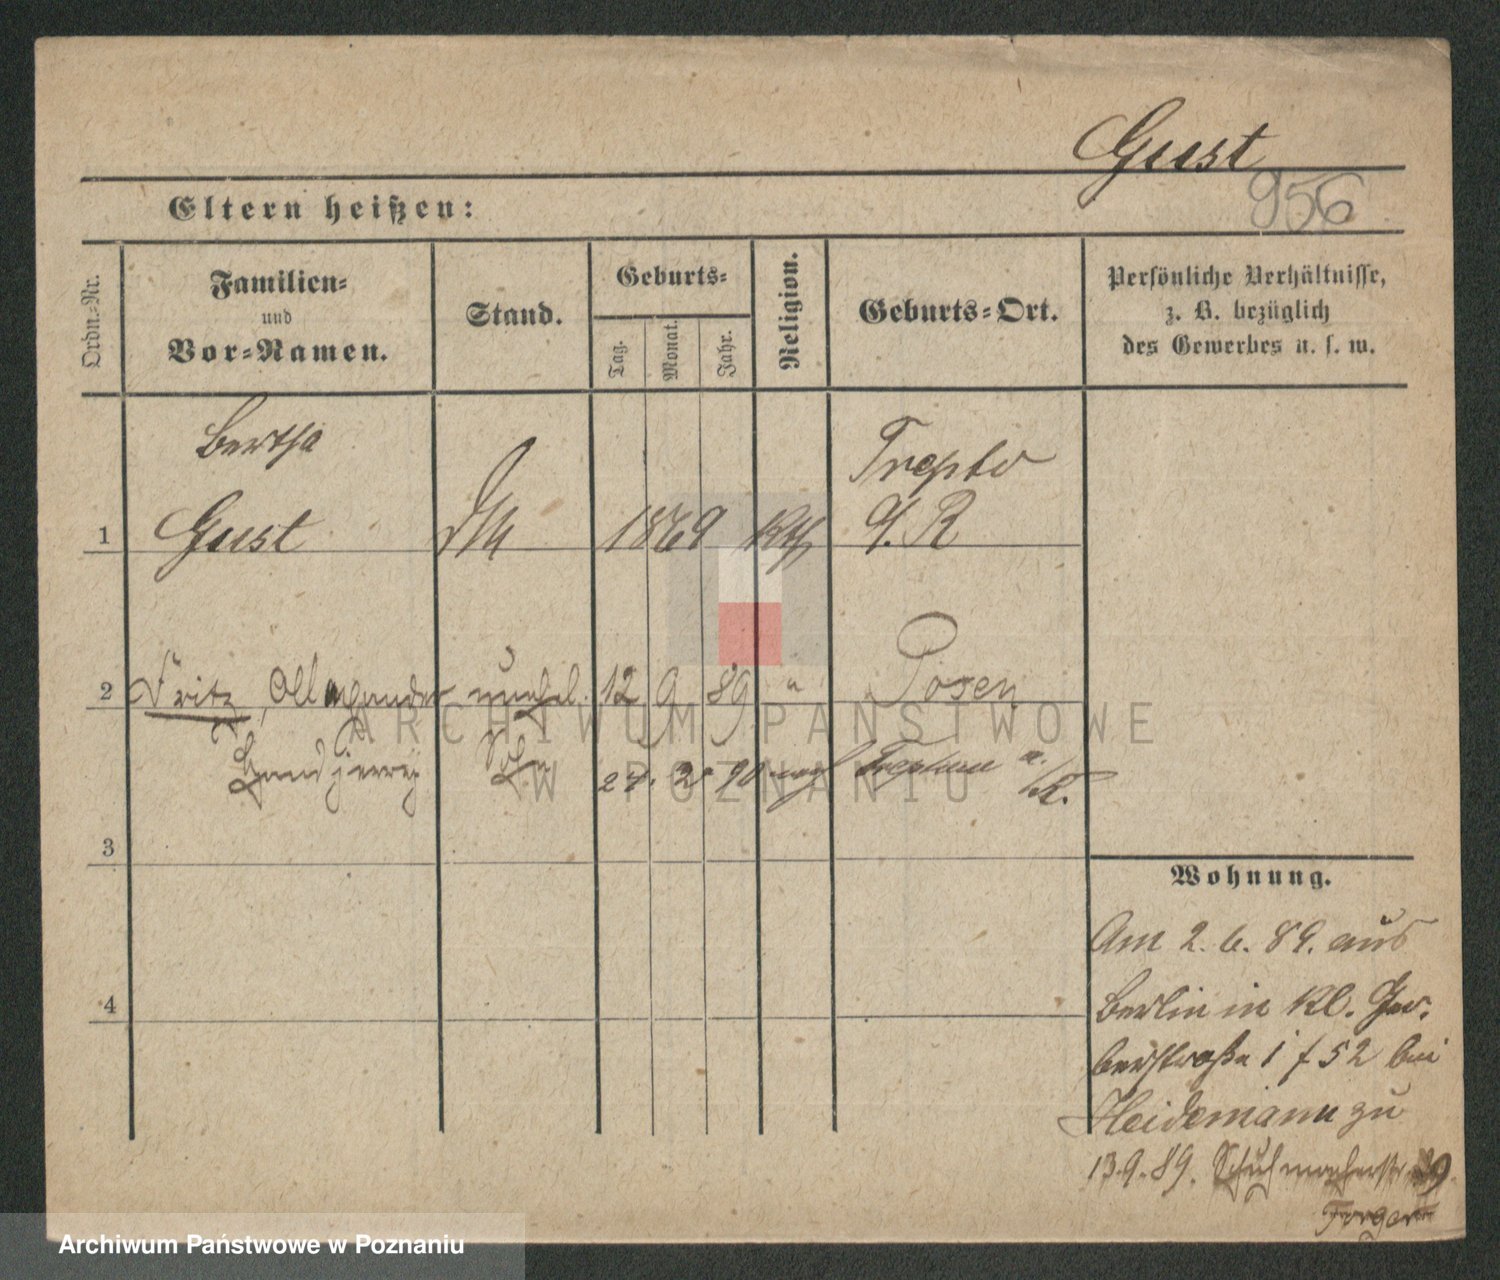 Gust
956
Eltern heißen:
Ordn.-Nr.
Familien-
und
Vor-Namen.
Stand.
Geburts-
Tag.
Monat.
Jahr.
Religion.
Geburts-Ort.
Persönliche Verhältnisse,
z. B. bezüglich
des Gewerbes u. s. w.
Bertha
Trepto
1 Gust 1869 Kth R
2 Fritz, unehel. 12 9 89 " Posen
Sohn 27. 2 90 nach Treptow a./R.
3
4
Wohnung.
Am 2. 6. 89. aus
Berlin in Kl. Ger-
berstraße 1 f 52 bei
Heidemann zu
13.9.89. Schuhmacherstr. 
ARCHIWUM PAŃSTWOWE
W POZNANIU
Archiwum Państwowe w Poznaniu